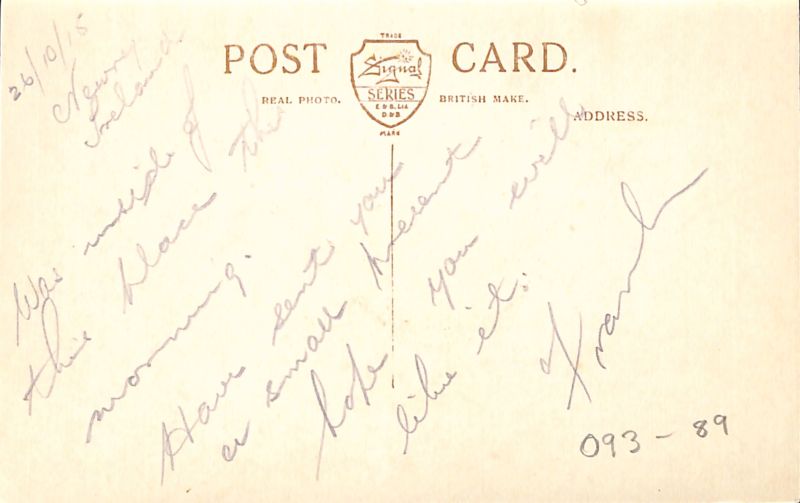 POST CARD.
TRADE
Signal
SERIES
E & S. Ltd
D & B
MARK
REAL PHOTO.
BRITISH MAKE.
ADDRESS.
26/10/15
Newry
Ireland.
Was inside of
this place this
morning.
Have sent you
a small present
hope you will
like it.
Frank
093-89